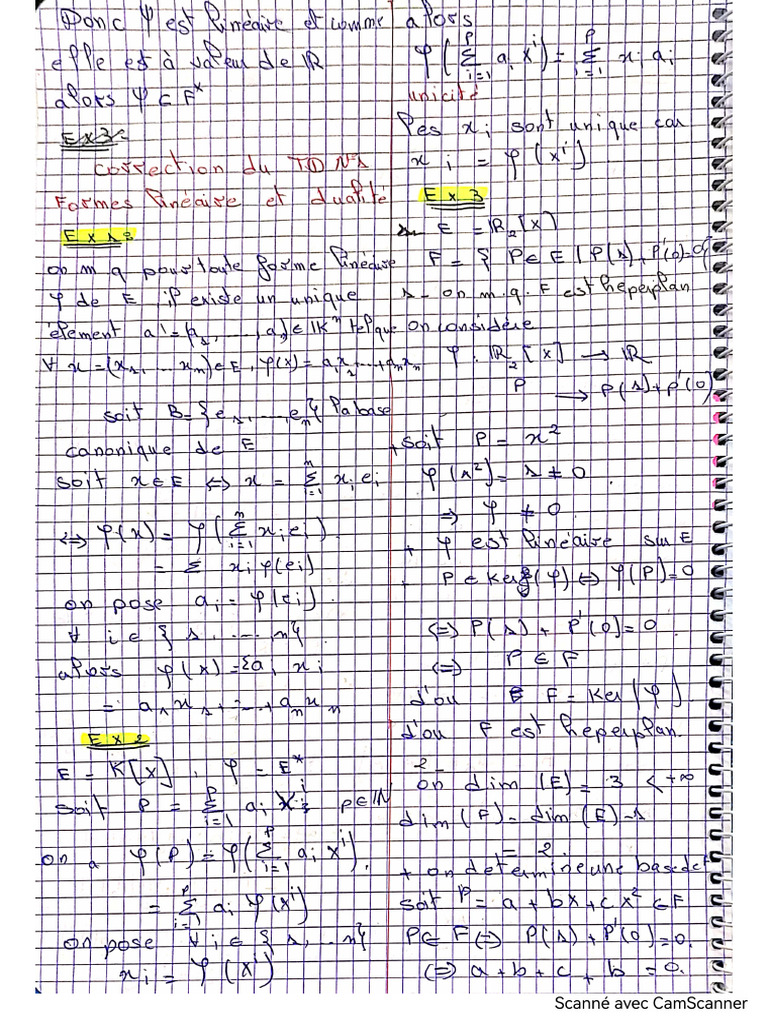 Donc φ est linéaire et comme
elle est à valeur de IR
alors φ ∈ F*
Ex3:
Correction du TD N°1
Formes linéaire et dualité
Ex 1:
on m q pour toute forme linéaire
φ de E, il existe un unique
élement a = (a₁, ..., aₙ) ∈ IKⁿ tel que
∀ x = (x₁, ... xₙ) ∈ E, φ(x) = a₁x₁ + ... + aₙxₙ
soit B = {e₁, ..., eₙ} la base
canonique de E
soit x ∈ E ⇔ x = Σⁿᵢ₌₁ xᵢ eᵢ
⇔ φ(x) = φ(Σⁿᵢ₌₁ xᵢ eᵢ)
= Σ xᵢ φ(eᵢ)
on pose aᵢ = φ(eᵢ)
∀ i ∈ {1, ... n}
alors φ(x) = Σaᵢ xᵢ
= a₁x₁ + ... + aₙxₙ
Ex 2
E = K[X], φ = E*
soit P = Σᵖᵢ₌₁ aᵢ Xⁱ p ∈ IN
on a φ(P) = φ(Σᵖᵢ₌₁ aᵢ Xⁱ).
= Σᵖᵢ₌₁ aᵢ φ(Xⁱ)
on pose ∀ i ∈ {1, ... n}
xᵢ = φ(Xⁱ)
alors
φ(Σᵖᵢ₌₁ aᵢ Xⁱ) = Σᵖᵢ₌₁ xᵢ aᵢ
unicité
les xᵢ sont unique car
xᵢ = φ(Xⁱ)
Ex 3
E = IR₂[X]
F = { P ∈ E / P(1) + P'(0) = 0}
1- on m.q. F est heperplan
on considère
φ : IR₂[X] → IR
P → P(1) + P'(0)
+ soit P = x²
φ(x²) = 1 ≠ 0
⇒ φ ≠ 0
+ φ est linéaire sur E
P ∈ Ker(φ) ⇔ φ(P) = 0
⇔ P(1) + P'(0) = 0
⇔ P ∈ F
d'ou F = Ker(φ)
d'ou F est heperplan.
2-
on dim(E) = 3 < +∞
dim(F) = dim(E) - 1
= 2.
+ on determine une base de F
soit P = a + bx + cx² ∈ F
P ∈ F ⇔ P(1) + P'(0) = 0.
⇔ a + b + c + b = 0.
Scanné avec CamScanner